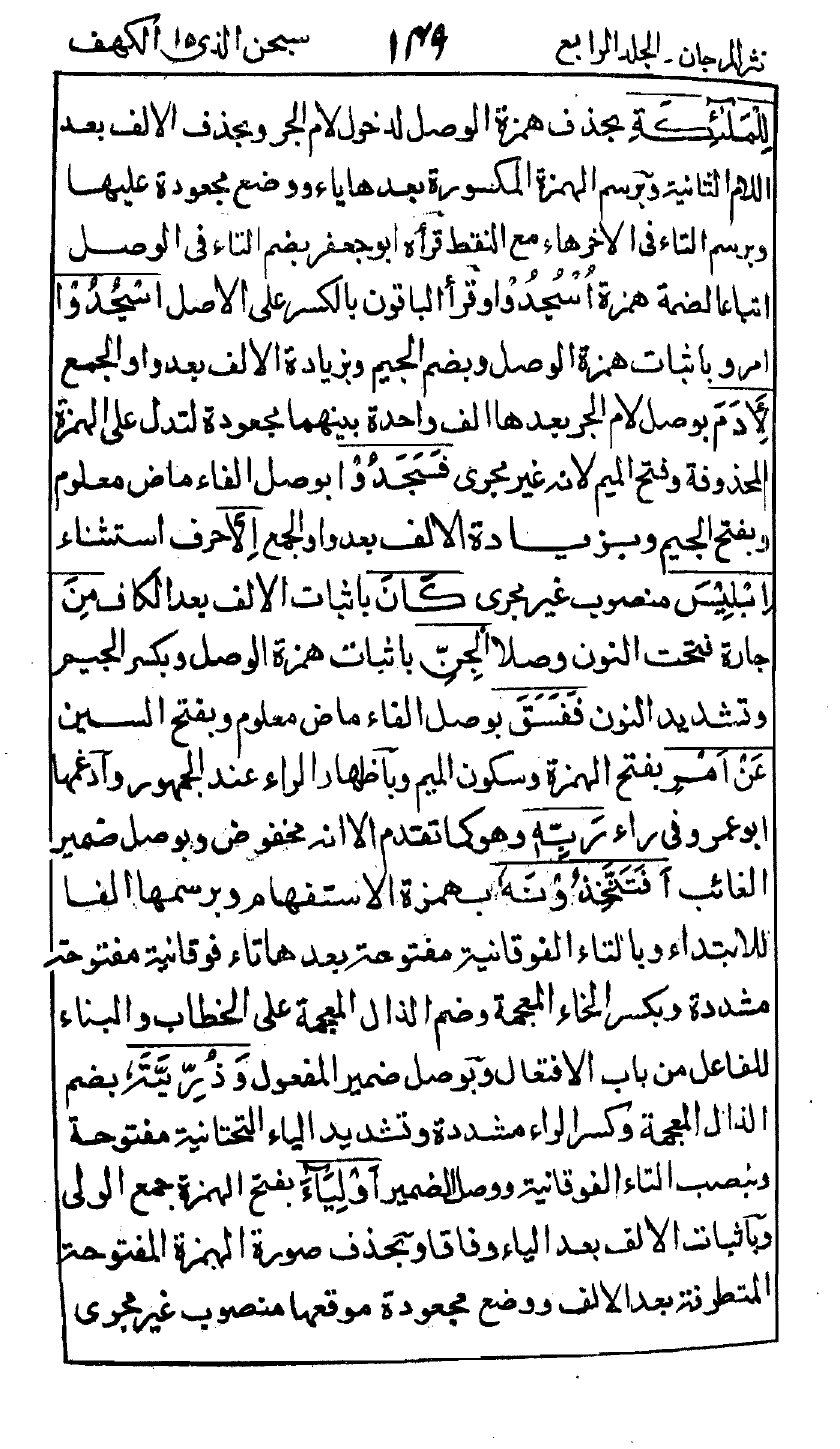 نثر المرجان - الجلد الرابع ١٤٩ سبحن الذى ١٥ الكهف
لِلْمَلٰٓئِكَةِ بحذف همزة الوصل لدخول لام الجر وبحذف الالف بعد
اللام الثانية وبرسم الهمزة المكسورة بعدها ياء ووضع مجعودة عليها
وبرسم التاء فى الاخر هاء مع النقط قرأه ابوجعفر بضم التاء فى الوصل
اتباعا لضمة همزة اُسْجُدُوْا وقرأ الباقون بالكسر على الاصل اسْجُدُوْا
امر و باثبات همزة الوصل وبضم الجيم وبزيادة الالف بعد واو الجمع
لِأٰدَمَ بوصل لام الجر بعدها الف واحدة بينهما مجعودة لتدل على الهمزة
المحذوفة وفتح الميم لانه غير مجرى فَسَجَدُوْا بوصل الفاء ماض معلوم
وبفتح الجيم وبزيادة الالف بعد واو الجمع اِلَّا حرف استثناء
اِبْلِيْسَ منصوب غير مجرى كَانَ باثبات الالف بعد الكاف مِنَ
جارة فتحت النون وصلا الْجِنِّ باثبات همزة الوصل وبكسر الجيم
وتشديد النون فَفَسَقَ بوصل الفاء ماض معلوم وبفتح السين
عَنْ اَمْرِ بفتح الهمزة وسكون الميم وباظهار الراء عند الجمهور وآدغمها
ابوعمرو فى راء رَبِّهٖ وهو كما تقدم الا انه مخفوض وبوصل ضمير
الغائب اَفَتَتَّخِذُوْنَهٗ بهمزة الاستفهام وبرسمها الفا
للابتداء وبالتاء الفوقانية مفتوحة بعدها تاء فوقانية مفتوحة
مشددة وبكسر الخاء المعجمة وضم الذال المعجمة على الخطاب والبناء
للفاعل من باب الافتعال وبوصل ضمير المفعول وَذُرِّيَّتَهٗ بضم
الذال المعجمة وكسر الراء مشددة وتشديد الياء التحتانية مفتوحة
وبنصب التاء الفوقانية ووصل الضمير اَوْلِيَآءَ بفتح الهمزة جمع الولى
وباثبات الالف بعد الياء وفاقا وبحذف صورة الهمزة المفتوحة
المتطرفة بعد الالف ووضع مجعودة موقعها منصوب غير مجرى